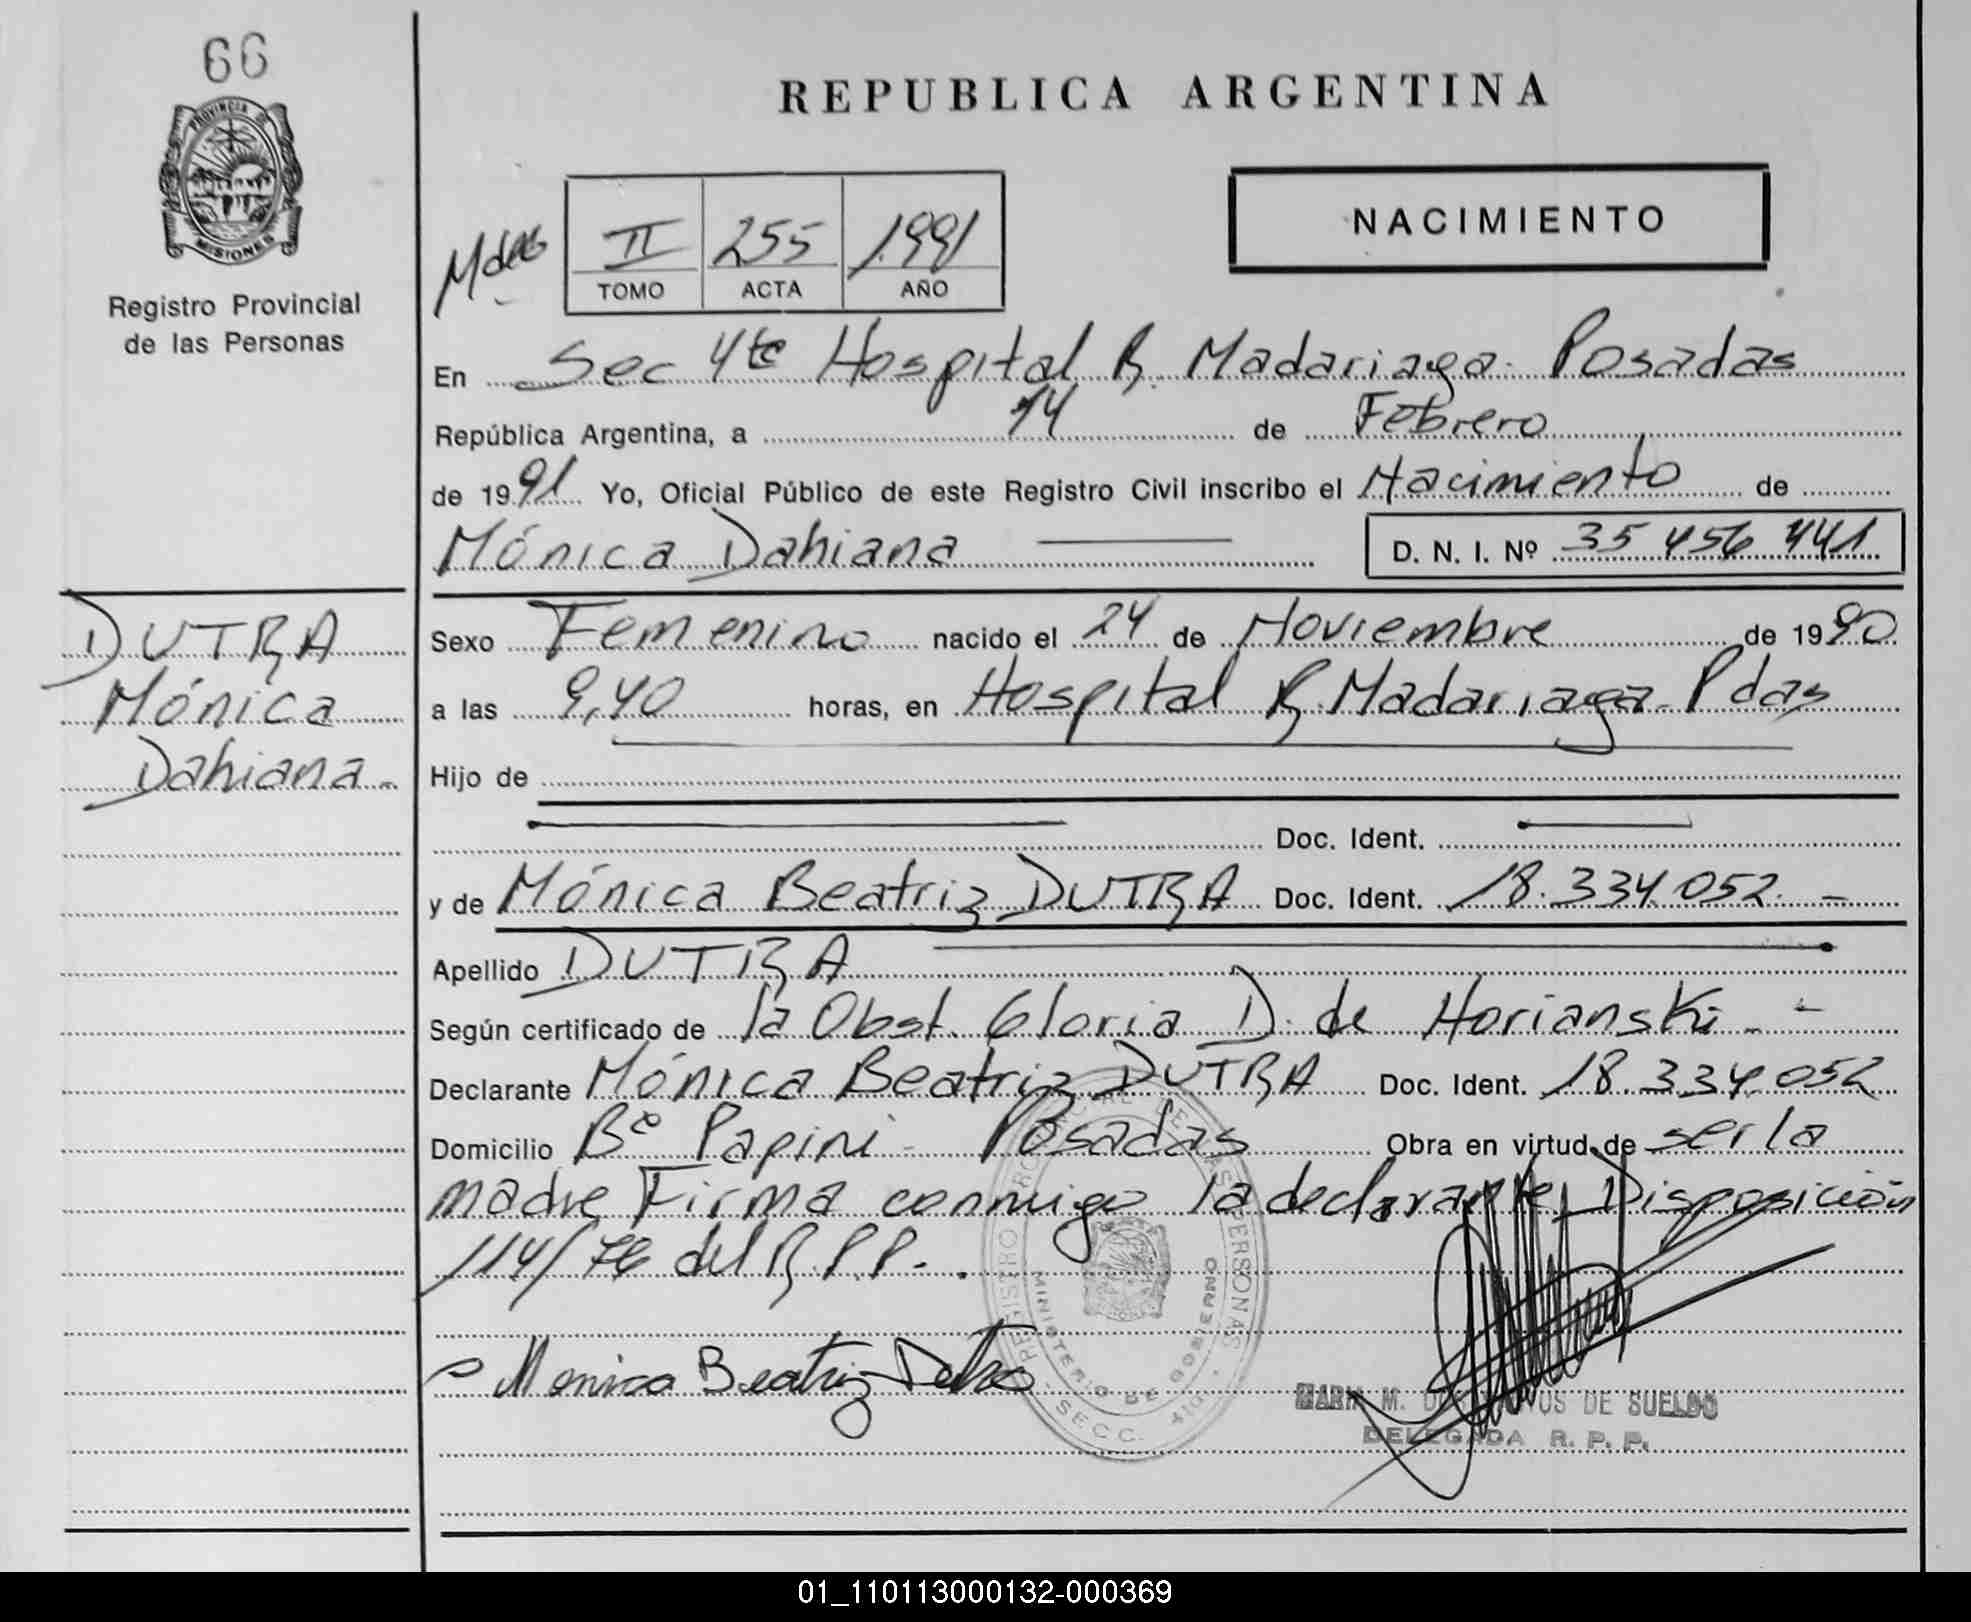 66
PROVINCIA DE
MISIONES
Registro Provincial
de las Personas
REPUBLICA ARGENTINA
NACIMIENTO
II 255 1991
TOMO ACTA AÑO
En Sec 4ta Hospital R. Madariaga - Posadas
República Argentina, a 14 de Febrero
de 1991 Yo, Oficial Público de este Registro Civil inscribo el Nacimiento de
Mónica Dahiana D. N. I. Nº 35 456 441
DUTRA
Mónica
Dahiana -
Sexo Femenino nacido el 24 de Noviembre de 1990
a las 9,40 horas, en Hospital R. Madariaga - Pdas
Hijo de
Doc. Ident.
y de Mónica Beatriz DUTRA Doc. Ident. 18.334.052. -
Apellido DUTRA
Según certificado de la Obst. Gloria D. de Horianski - -
Declarante Mónica Beatriz DUTRA Doc. Ident. 18.334.052
Domicilio Bº Papini - Posadas Obra en virtud de ser la
madre Firma conmigo la declarante, Disposición
114/76 del R.P.P. - .
Monica Beatriz Dutra
REGISTRO PROVINCIAL DE LAS PERSONAS
MINISTERIO DE GOBIERNO
SECC.
M. DE SUELDO
DELEGADA R. P. P.
01_110113000132-000369